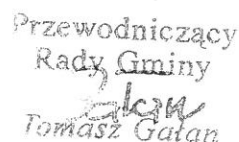 Przewodniczący
Rady Gminy
Tomasz Gałan